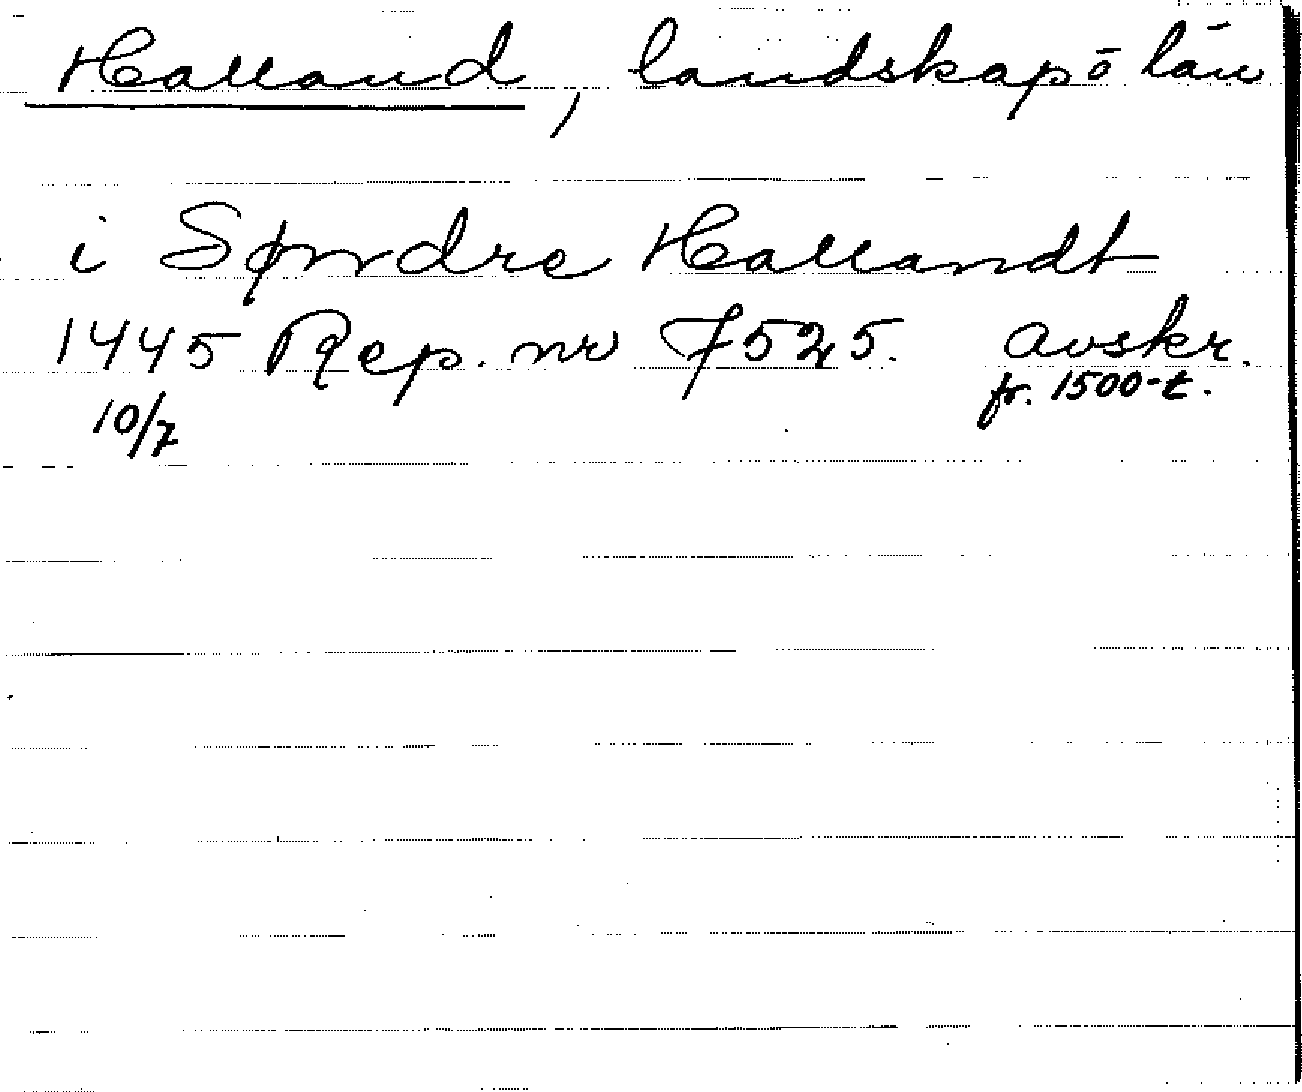 Halland, landskap o län
i Søndre Hallandt
1445 Rep. nr 7525. avskr.
10/7 fr. 1500-t.